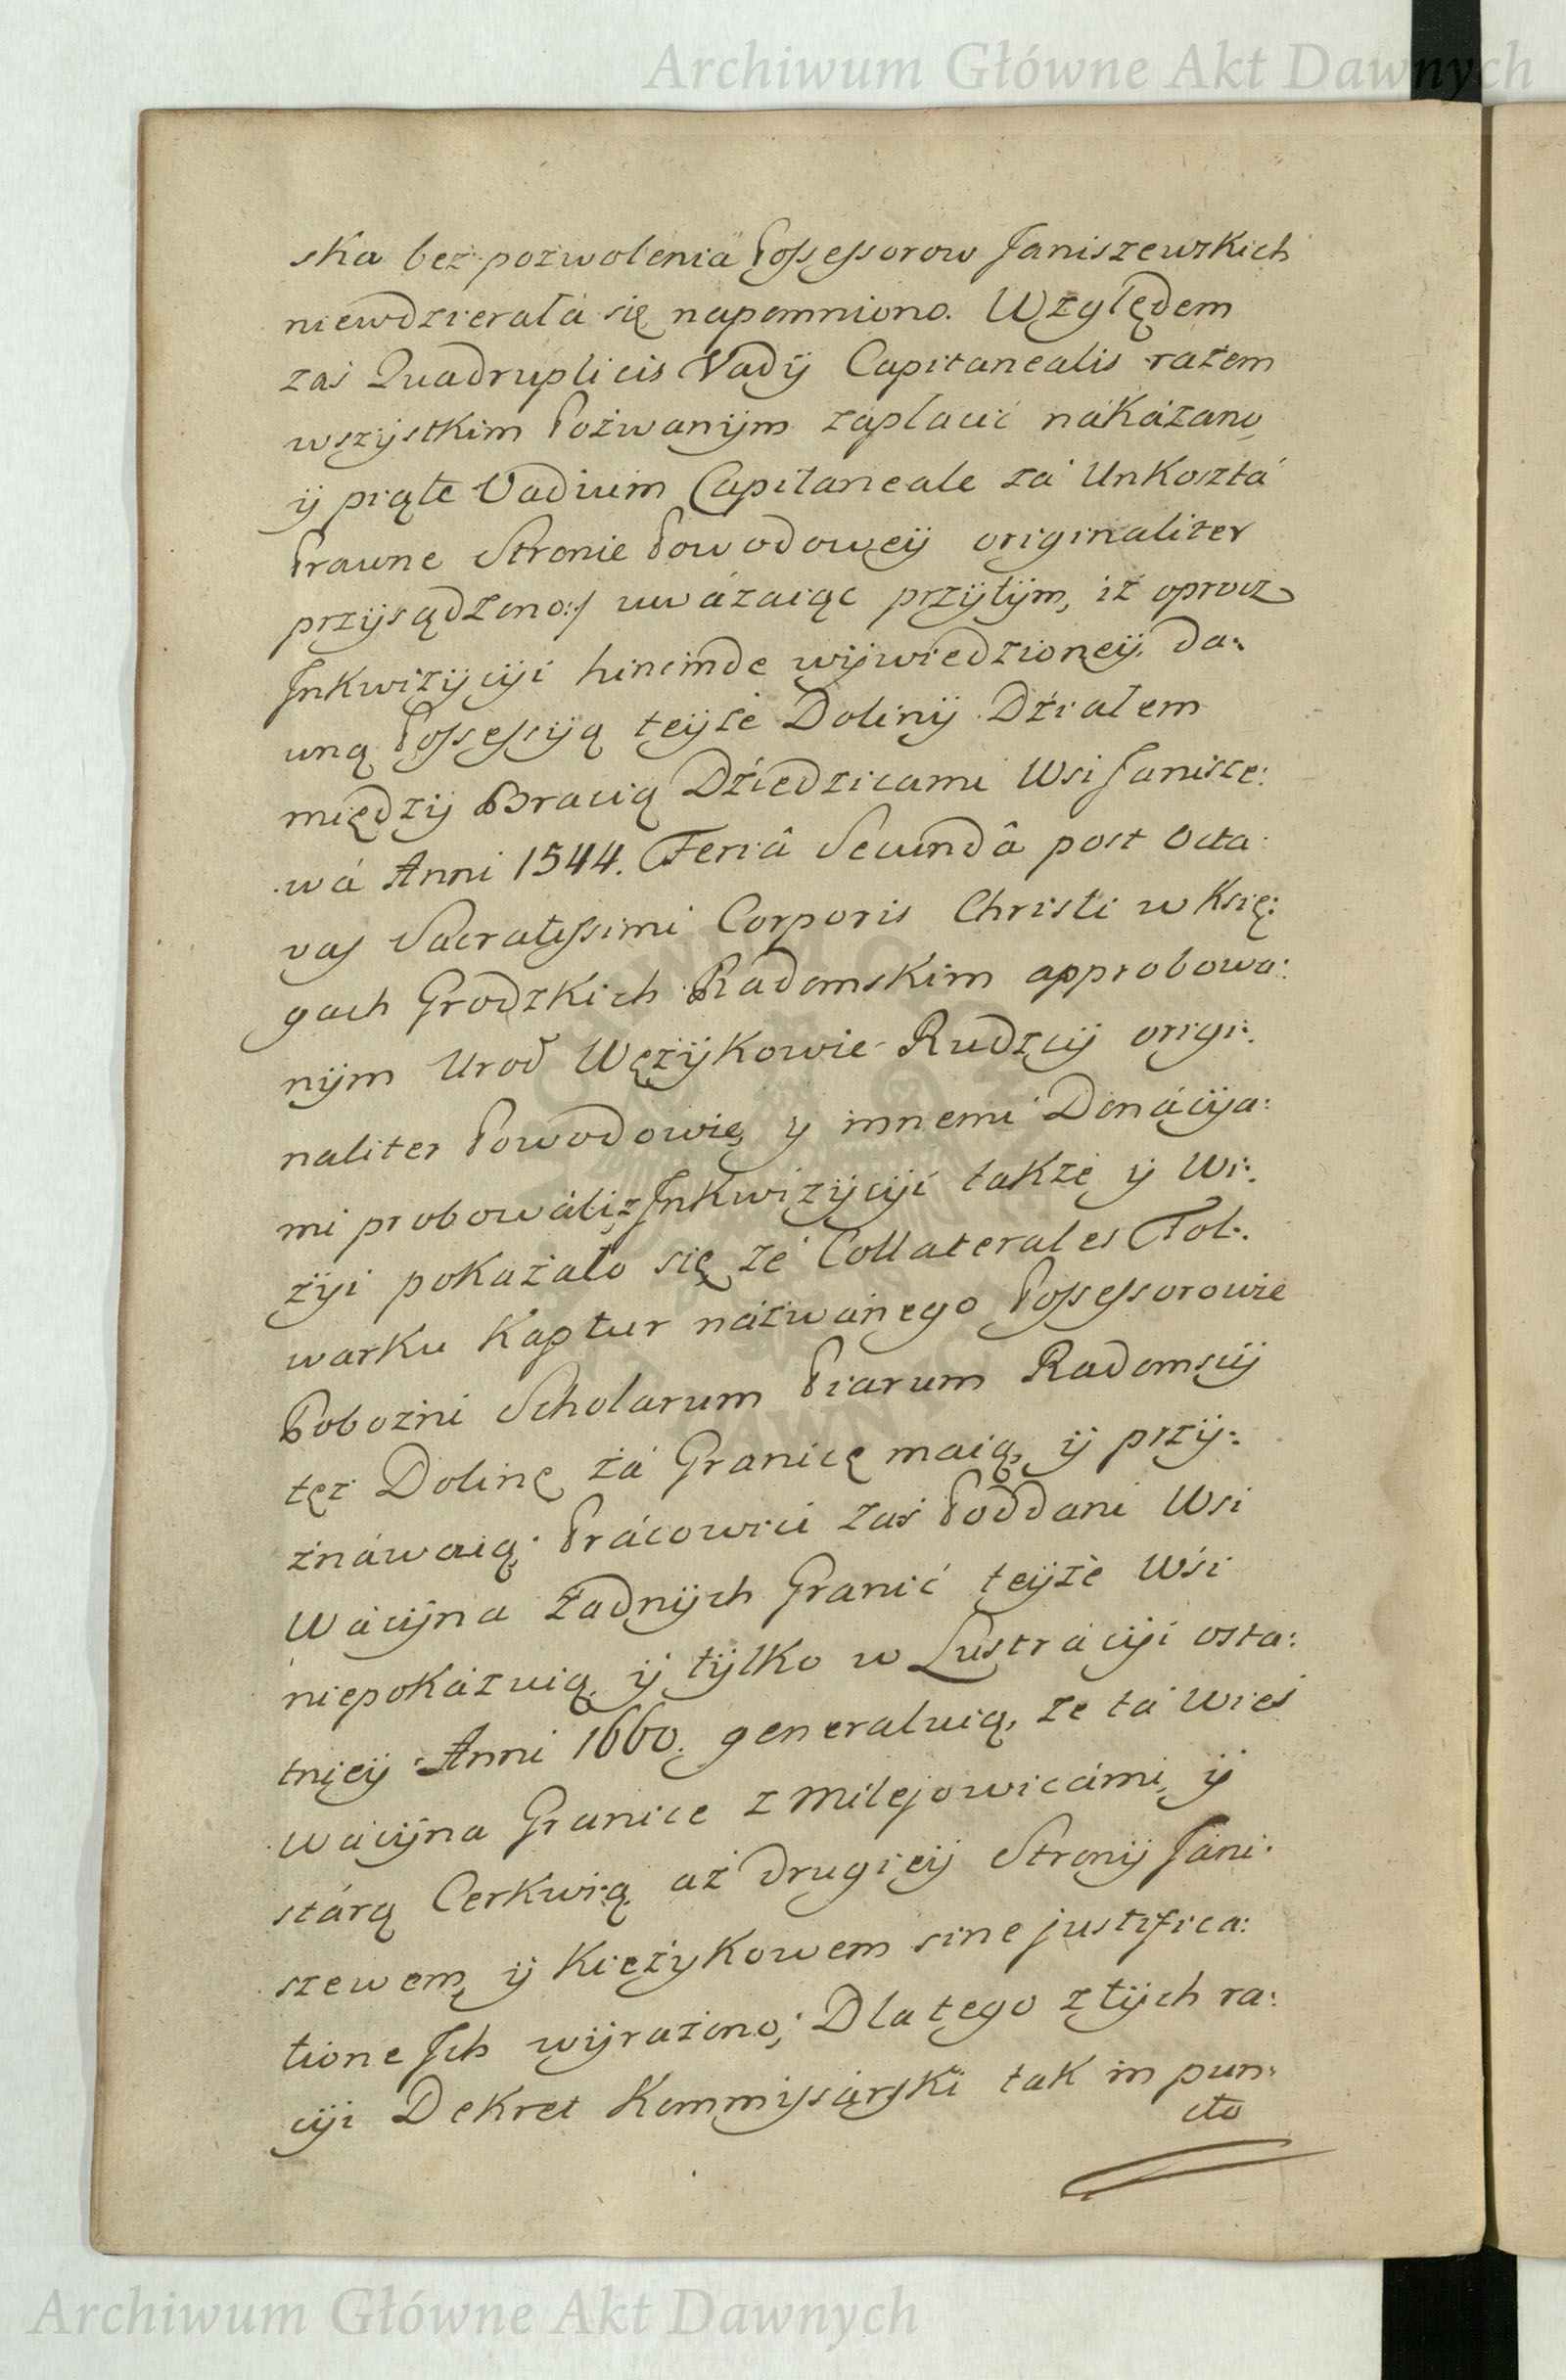 Archiwum Główne Akt Dawnych
ska bez pozwolenia Possessorow Janiszewskich
niewdzierała się napomniono. Względem
zaś Quadruplicis Vadij Capitanealis razem
wszystkim Pozwanijm zaplacić nakazano
ij piąte Vadium Capitaneale za Unkoszta
Prawne Stronie Powodoweij originaliter
przijsądzono:/ uwazaiąc przijtijm, iż oprocz
Inkwizijciji hincinde wijwiedzioneij, da:
wną Possessiją teijże Dolinij Działem
międzij Bracią Dziedzicami Wsi Janisze:
wa Anni 1544. Feriâ Secundâ post Octa:
vas Sacratissimi Corporis Christi w Księ:
gach Grodzkich Radomskim approbowa:
nijm Urod Wężijkowie Rudzcij origi:
naliter Powodowie, y innemi Donacija:
mi probowali, z Inkwizijciji także ij Wi:
ziji pokazało się że Collaterales Fol:
warku Kaptur nazwanego Possessorowie
Pobozni Scholarum Piarum Radomscij
też Dolinę za Granicę maią, ij przij:
znawaią: Pracowici zaś Poddani Wsi
Wacijna żadnijch Granić teijże Wśi
niepokazuią, ij tijlko w Lustraciji osta:
tnieij Anni 1660. generaluią, że ta Wieś
Wacijna Granice z Milejowicami, ij
starą Cerkwią, aż drugieij Stronij Jani:
szewem, ij Kiężykowem sine justifica:
tione Ich wijrażono; Dlatego z tijch ra:
ciji Dekret Kommissarski tak in pun:
cto
Archiwum Główne Akt Dawnych